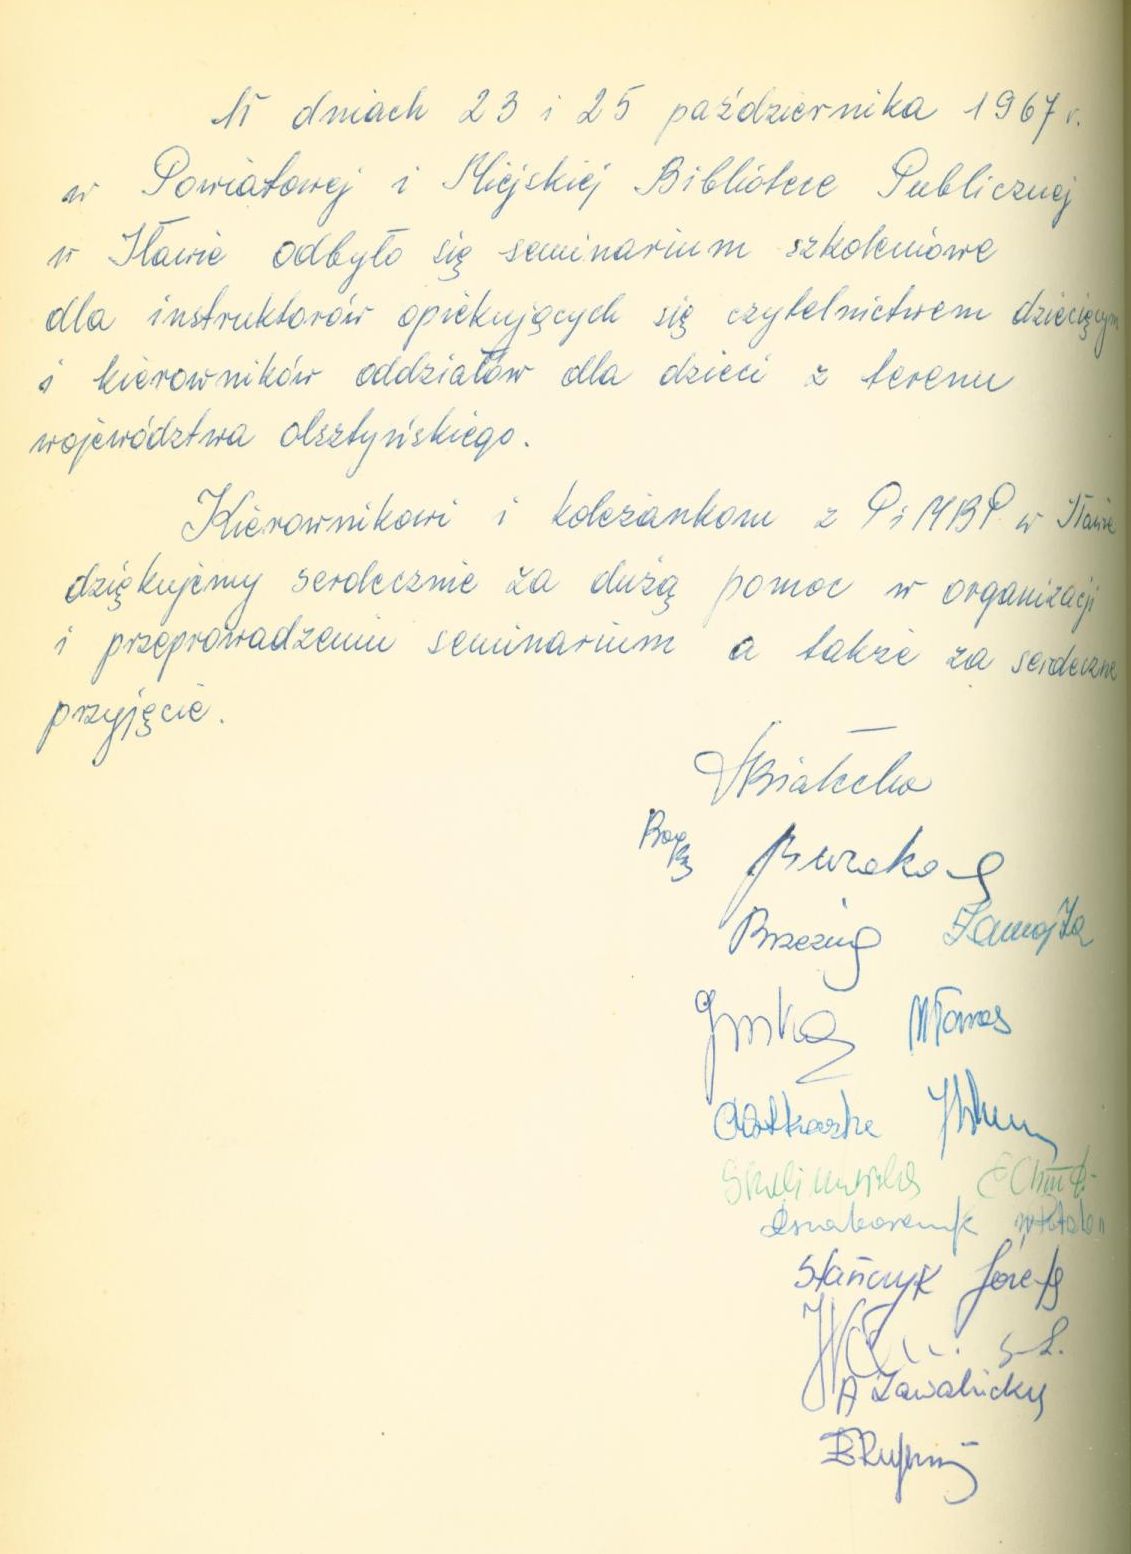 W dniach 23 i 25 października 1967 r.
w Powiatowej i Miejskiej Bibliotece Publicznej
w Iławie odbyło się seminarium szkoleniowe
dla instruktorów opiekujących się czytelnictwem dziecięcym
i kierowników oddziałów dla dzieci z terenu
województwa olsztyńskiego.
Kierownikowi i koleżankom z PiMBP w Iławie
dziękujemy serdecznie za dużą pomoc w organizacji
i przeprowadzeniu seminarium a także za serdeczne
przyjęcie.
Stańczyk Józefa